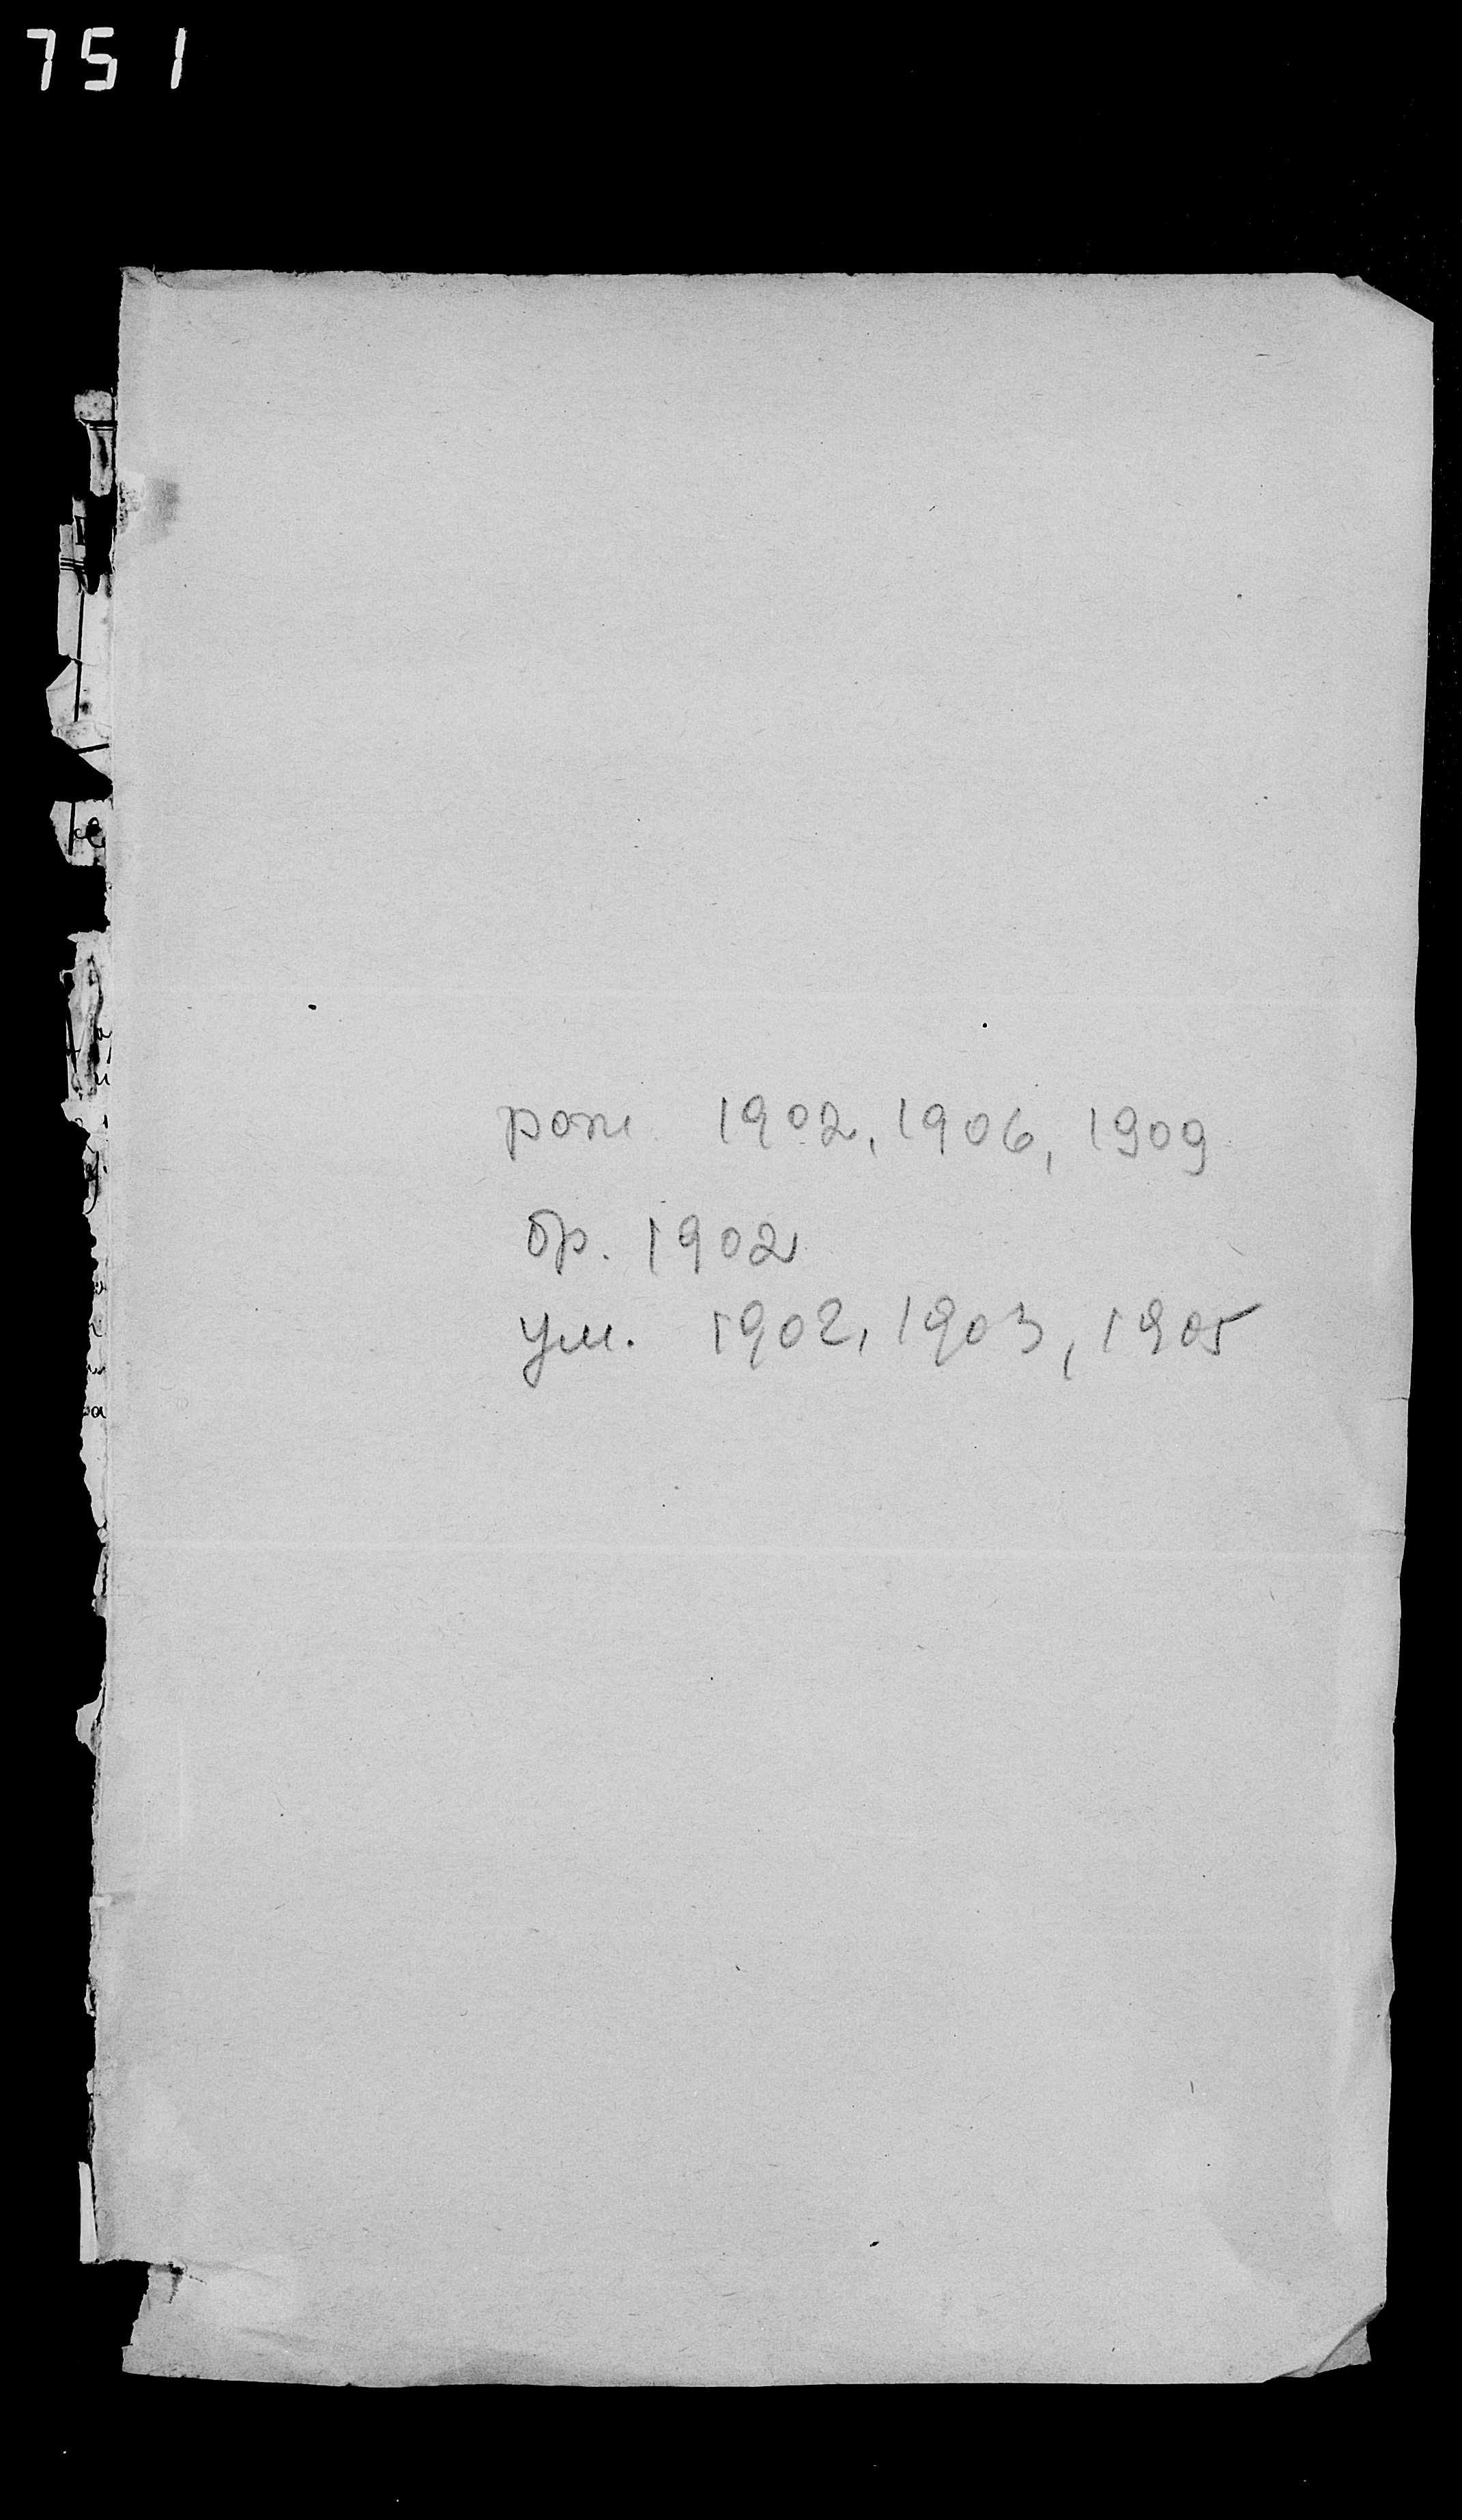 751
рож 1902, 1906, 1909
бр. 1902
ум. 1902, 1903, 1905